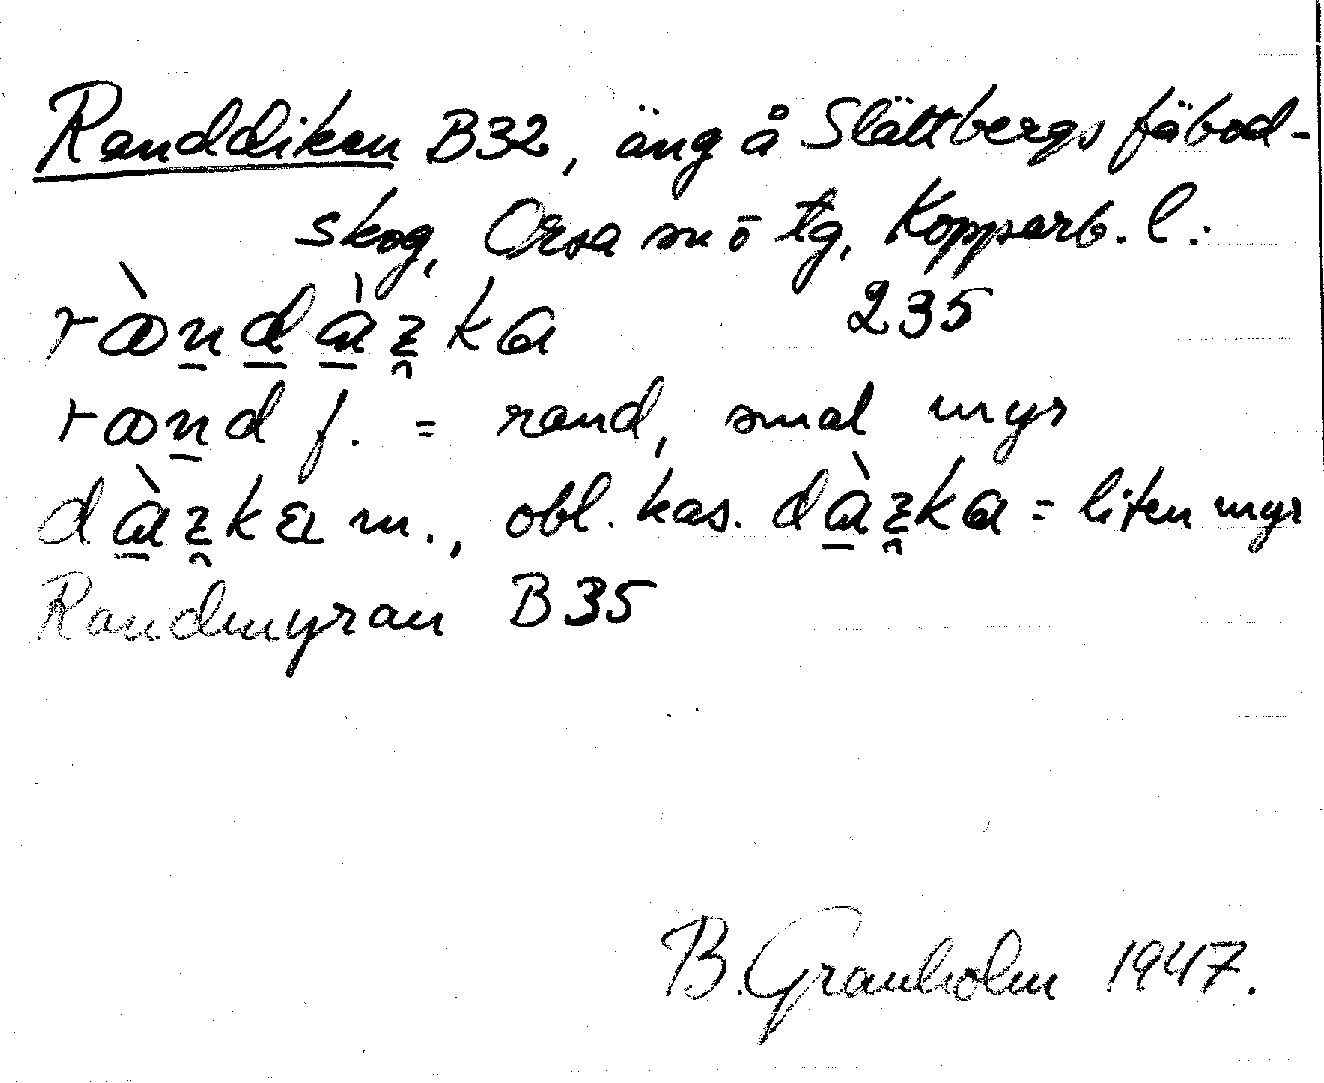 Randdiken B32, äng å Slättbergs fäbod-
skog, Orsa sn ō tg, Kopparb. l.:
ræ̀ndà̱ʒ̯ka 235
rænd f. = rand, smal myr
dà̱ʒ̯kɛ m., obl. kas. dà̱ʒ̯ka = liten myr
Randmyran B35
B. Granholm 1947.